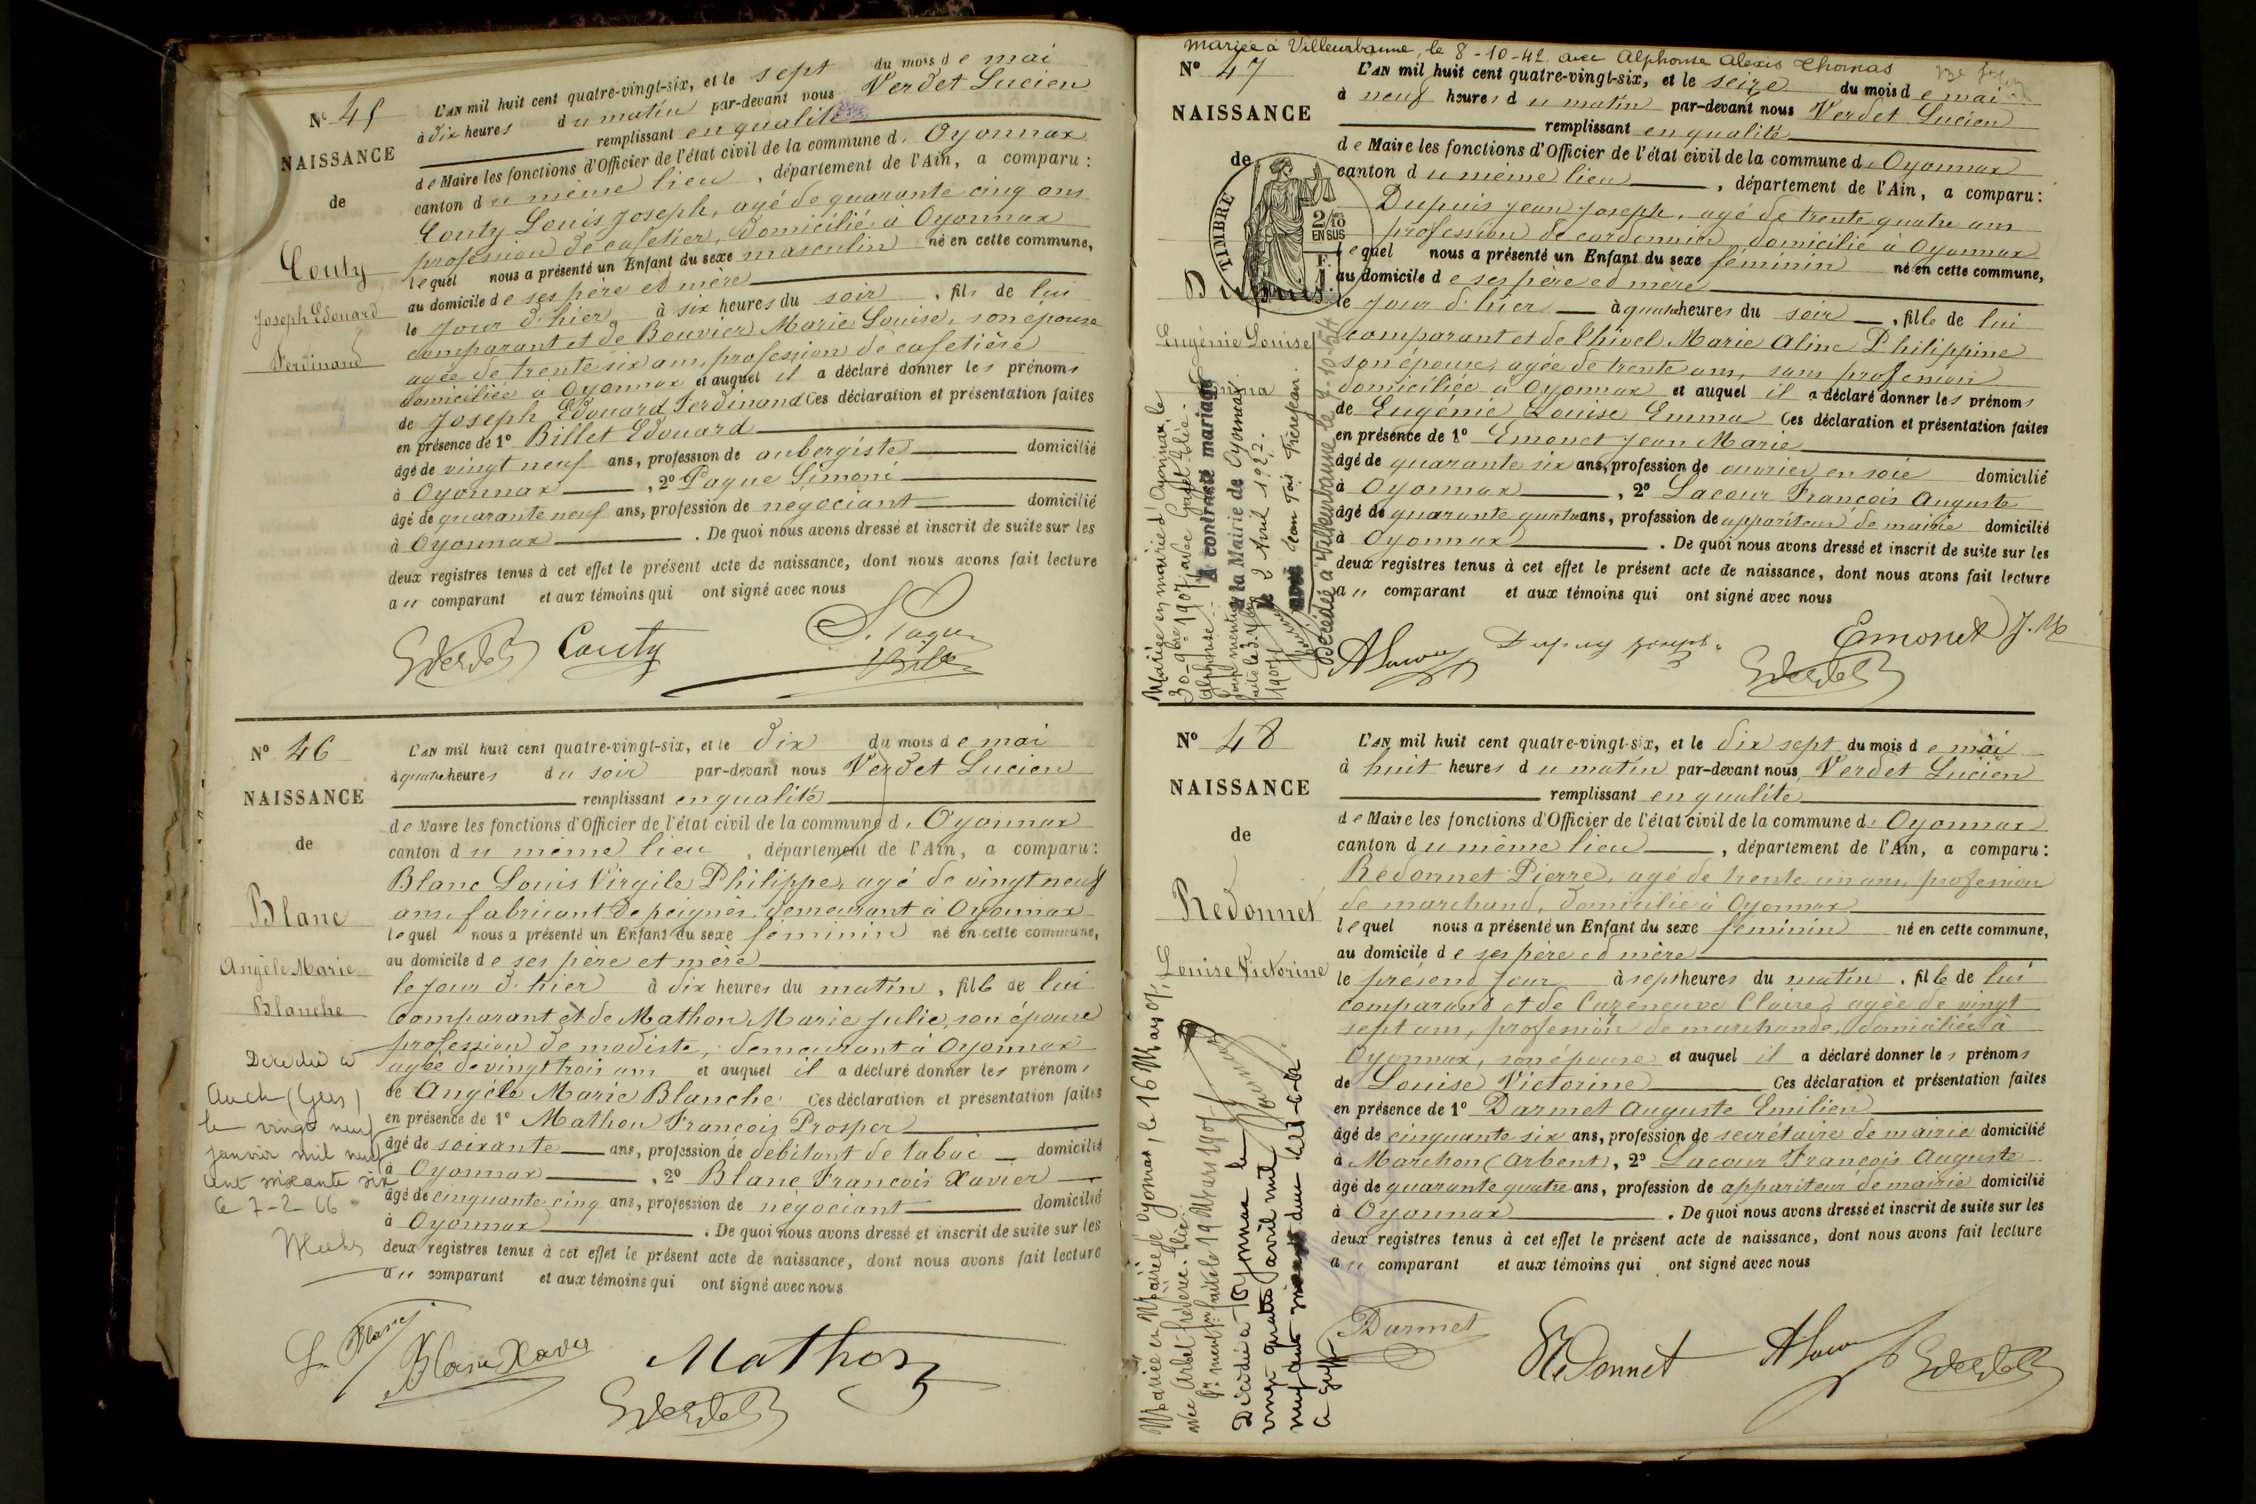 N° 45
NAISSANCE
de
Couty
Joseph Edouard
Ferdinand
L'AN mil huit cent quatre-vingt-six, et le sept du mois de mai
à dix heures du matin par-devant nous Verdet Lucien
remplissant en qualité
de Maire les fonctions d'Officier de l'état civil de la commune d'Oyonnax
canton du même lieu, département de l'Ain, a comparu :
Couty Louis Joseph, agé de quarante cinq ans
profession de cafetier, domicilié à Oyonnax
lequel nous a présenté un Enfant du sexe masculin né en cette commune,
au domicile de ses père et mère
le jour d'hier à six heures du soir, fils de lui
comparant et de Bouvier Marie Louise, son épouse
agée de trente six ans, profession de cafetière
domiciliée à Oyonnax et auquel il a déclaré donner les prénoms
de Joseph Edouard Ferdinand Ces déclaration et présentation faites
en présence de 1° Billet Edouard
âgé de vingt neuf ans, profession de aubergiste domicilié
à Oyonnax, 2° Paque Simoni
âgé de quarante neuf ans, profession de négociant domicilié
à Oyonnax. De quoi nous avons dressé et inscrit de suite sur les
deux registres tenus à cet effet le présent acte de naissance, dont nous avons fait lecture
au comparant et aux témoins qui ont signé avec nous
Couty
N° 46
NAISSANCE
de
Blanc
Angèle Marie
Blanche
Décédée à
Auch (Gers)
le vingt neuf
janvier mil neuf
cent soixante six
le 7-2-66
L'AN mil huit cent quatre-vingt-six, et le dix du mois de mai
à quatre heures du soir par-devant nous Verdet Lucien
remplissant en qualité
de Maire les fonctions d'Officier de l'état civil de la commune d'Oyonnax
canton du même lieu, département de l'Ain, a comparu :
Blanc Louis Virgile Philippe, agé de vingt neuf
ans, fabricant de peignes, demeurant à Oyonnax
lequel nous a présenté un Enfant du sexe féminin né en cette commune,
au domicile de ses père et mère
le jour d'hier à dix heures du matin, fille de lui
comparant et de Mathon Marie Julie, son épouse
profession de modiste, demeurant à Oyonnax
agée de vingt trois ans et auquel il a déclaré donner les prénoms
de Angèle Marie Blanche Ces déclaration et présentation faites
en présence de 1° Mathon François Prosper
âgé de soixante ans, profession de débitant de tabac domicilié
à Oyonnax, 2° Blanc François Xavier
âgé de cinquante cinq ans, profession de négociant domicilié
à Oyonnax. De quoi nous avons dressé et inscrit de suite sur les
deux registres tenus à cet effet le présent acte de naissance, dont nous avons fait lecture
au comparant et aux témoins qui ont signé avec nous
L. Blanc
Blanc Xavier
Mathon
Mariée à Villeurbanne, le 8-10-42 avec Alphonse Alexis Thomas
N° 47
NAISSANCE
de
TIMBRE
2/10 EN SUS
Dupuis
Eugénie Louise
Emma
Mariée en mairie d'Oyonnax, le
30 9bre 1907, avec
Alphonse
A contracté mariage
à la Mairie de Oyonnax
le 8 Avril 1922
avec
Décédée à Villeurbanne le
L'AN mil huit cent quatre-vingt-six, et le seize du mois de mai
à neuf heures du matin par-devant nous Verdet Lucien
remplissant en qualité
de Maire les fonctions d'Officier de l'état civil de la commune d'Oyonnax
canton du même lieu, département de l'Ain, a comparu :
Dupuis Jean Joseph, agé de trente quatre ans
profession de cordonnier domicilié à Oyonnax
lequel nous a présenté un Enfant du sexe féminin né en cette commune,
au domicile de ses père et mère
le jour d'hier à quatre heures du soir, fille de lui
comparant et de Chivel Marie Aline Philippine
son épouse, agée de trente ans, sans profession
domiciliée à Oyonnax et auquel il a déclaré donner les prénoms
de Eugénie Louise Emma Ces déclaration et présentation faites
en présence de 1° Emonet Jean Marie
âgé de quarante six ans, profession de ouvrier en soie domicilié
à Oyonnax, 2° Lacour François Auguste
âgé de quarante quatre ans, profession de appariteur de mairie domicilié
à Oyonnax. De quoi nous avons dressé et inscrit de suite sur les
deux registres tenus à cet effet le présent acte de naissance, dont nous avons fait lecture
au comparant et aux témoins qui ont signé avec nous
ALacour
Dupuy Joseph
Emonet J. M
N° 48
NAISSANCE
de
Redonnet
Louise Victorine
Mariée en Mairie de Oyonnax, le 16 Mars 07,
avec Arbet
faite le 19 Mars 1907
Décédée à Oyonnax le
vingt quatre avril mil
L'AN mil huit cent quatre-vingt-six, et le dix sept du mois de mai
à huit heures du matin par-devant nous Verdet Lucien
remplissant en qualité
de Maire les fonctions d'Officier de l'état civil de la commune d'Oyonnax
canton du même lieu, département de l'Ain, a comparu :
Redonnet Pierre, agé de trente un ans, profession
de marchand, domicilié à Oyonnax
lequel nous a présenté un Enfant du sexe féminin né en cette commune,
au domicile de ses père et mère
le présent jour à sept heures du matin, fille de lui
comparant et de Cazeneuve Claire, agée de vingt
sept ans, profession de marchande, domiciliée à
Oyonnax, son épouse et auquel il a déclaré donner les prénoms
de Louise Victorine Ces déclaration et présentation faites
en présence de 1° Darmet Auguste Emilien
âgé de cinquante six ans, profession de secrétaire de mairie domicilié
à Marchon (Arbent), 2° Lacour François Auguste
âgé de quarante quatre ans, profession de appariteur de mairie domicilié
à Oyonnax. De quoi nous avons dressé et inscrit de suite sur les
deux registres tenus à cet effet le présent acte de naissance, dont nous avons fait lecture
au comparant et aux témoins qui ont signé avec nous
Darmet
Redonnet
ALacour